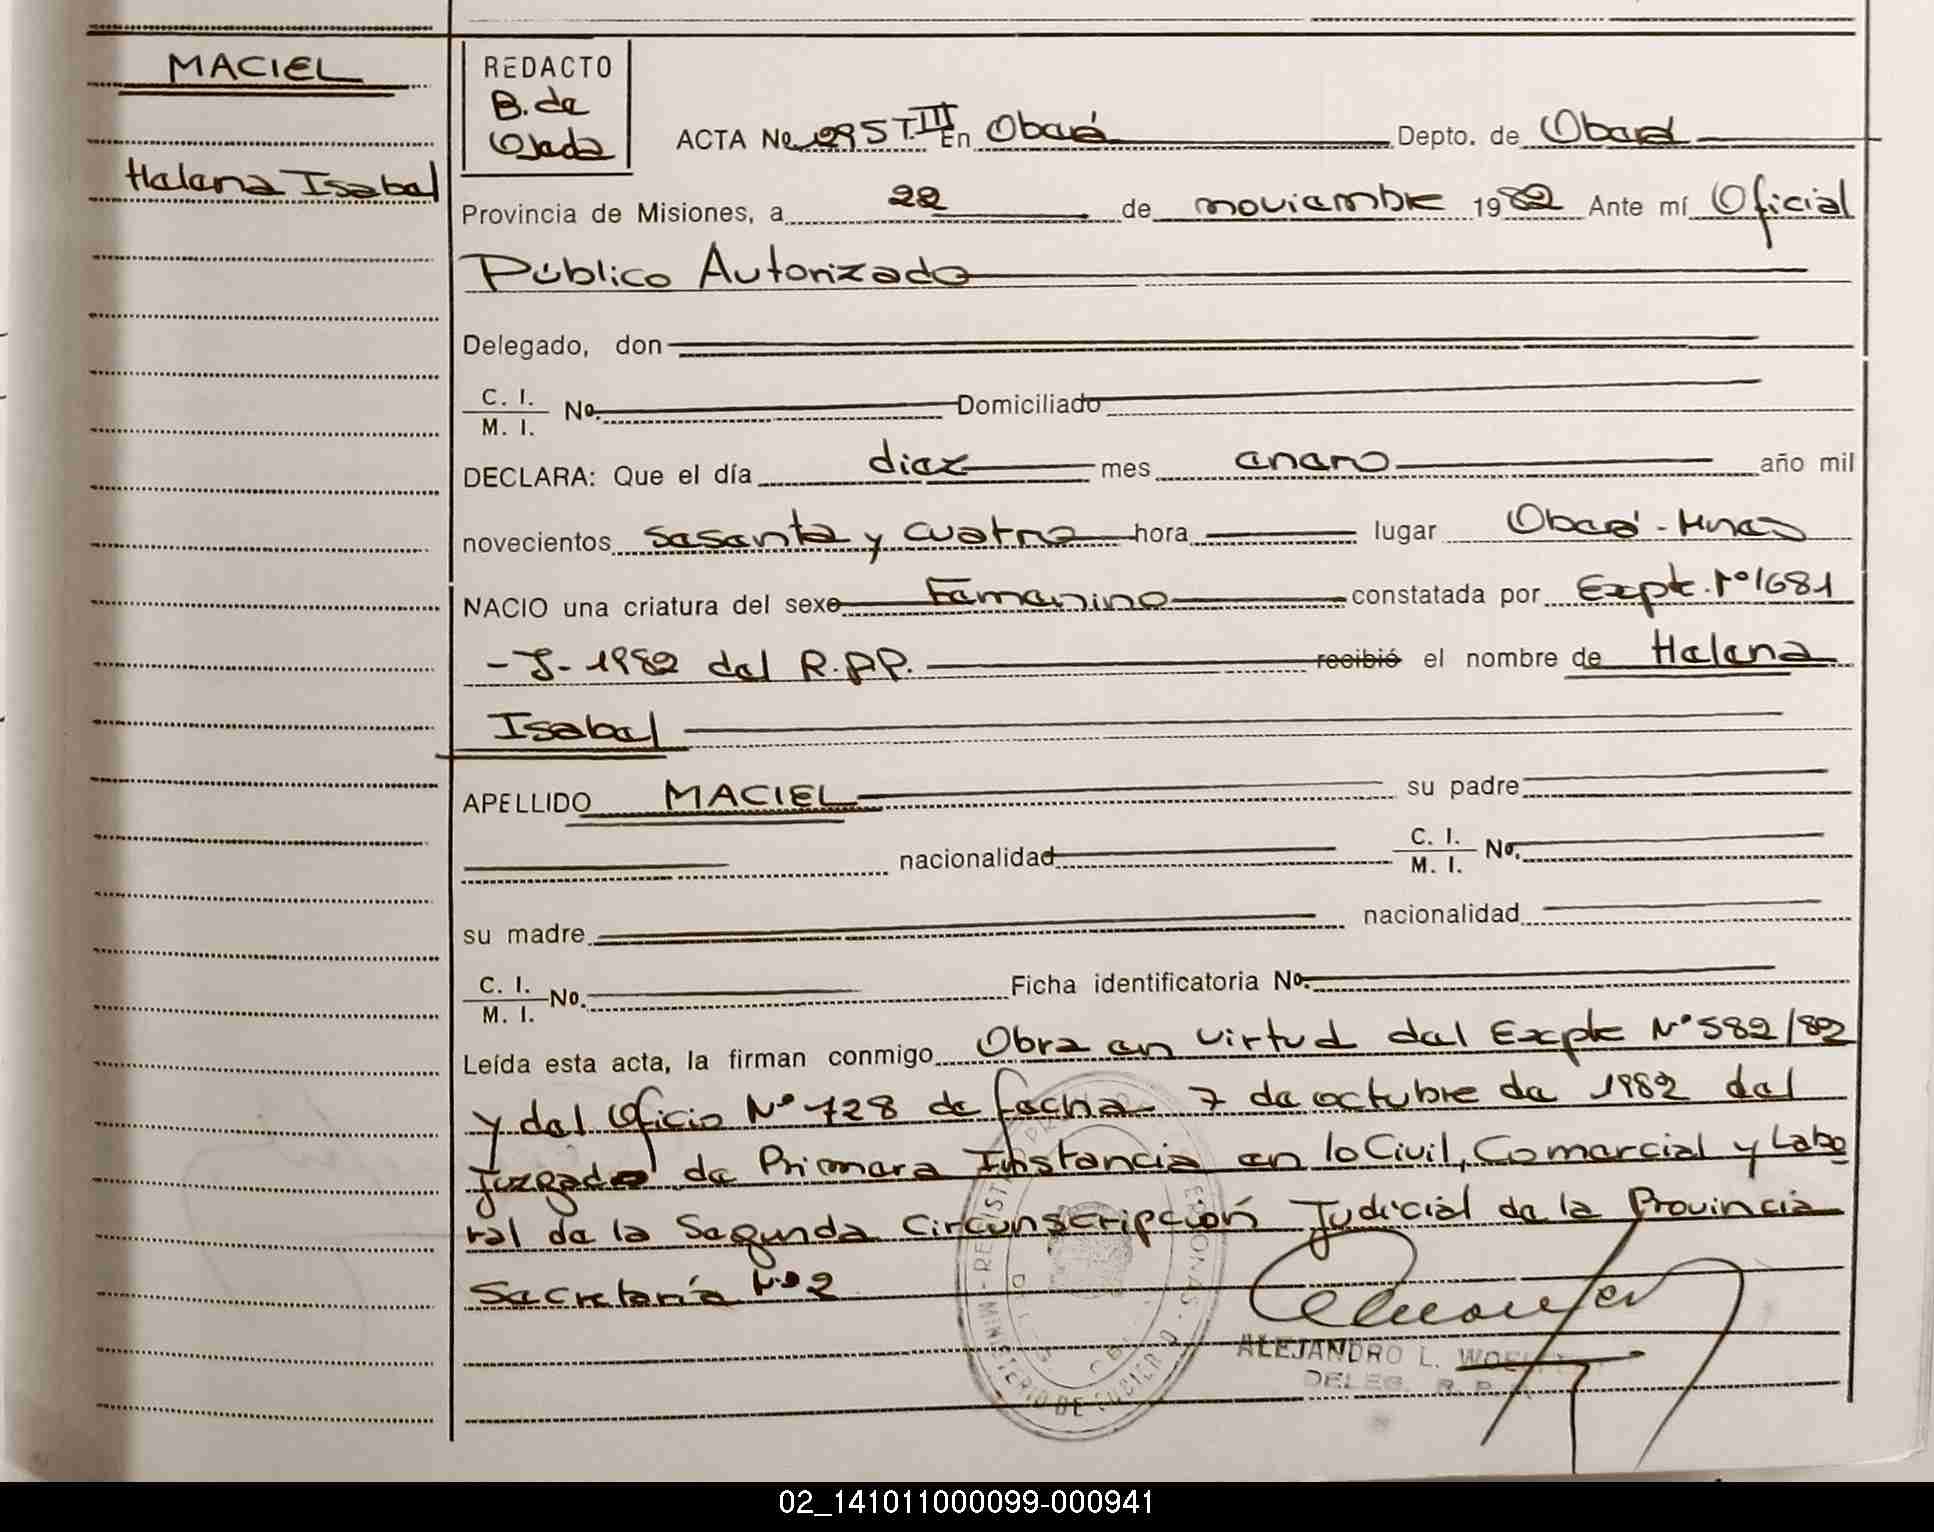 MACIEL
Helena Isabel
REDACTO
B. de
Ojeda
ACTA No. 295 T. III En Oberá Depto. de Oberá
Provincia de Misiones, a 22 de noviembre 1982 Ante mí Oficial
Público Autorizado
Delegado, don
C. I.
M. I. No. Domiciliado
DECLARA: Que el día diez mes enero año mil
novecientos sesenta y cuatro hora lugar Oberá - Mnes
NACIO una criatura del sexo Femenino constatada por Expte. Nº 1681
- J - 1982 del R.P.P. recibió el nombre de Helena
Isabel
APELLIDO MACIEL su padre
nacionalidad C. I.
M. I. No.
su madre nacionalidad
C. I.
M. I. No. Ficha identificatoria No.
Leída esta acta, la firman conmigo Obra en virtud del Expte Nº 582/82
y del Oficio Nº 728 de fecha 7 de octubre de 1982 del
Juzgado de Primera Instancia en lo Civil, Comercial y Labo
ral de la Segunda Circunscripción Judicial de la Provincia
Secretaría Nº 2
ALEJANDRO L.
DELEG. R. P.
02_141011000099-000941